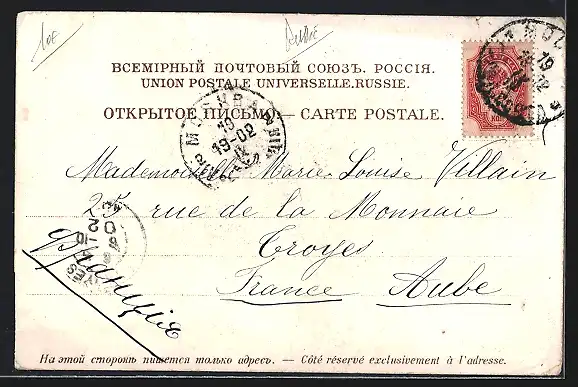 ВСЕМІРНЫЙ ПОЧТОВЫЙ СОЮЗЪ. РОССІЯ.
UNION POSTALE UNIVERSELLE. RUSSIE.
ОТКРЫТОЕ ПИСЬМО — CARTE POSTALE.
МОСКВА
19-02
Mademoiselle Marie-Louise Villain
25 rue de la Monnaie
Troyes
France Aube
Франція
На этой сторонѣ пишется только адресъ. — Côté réservé exclusivement à l'adresse.